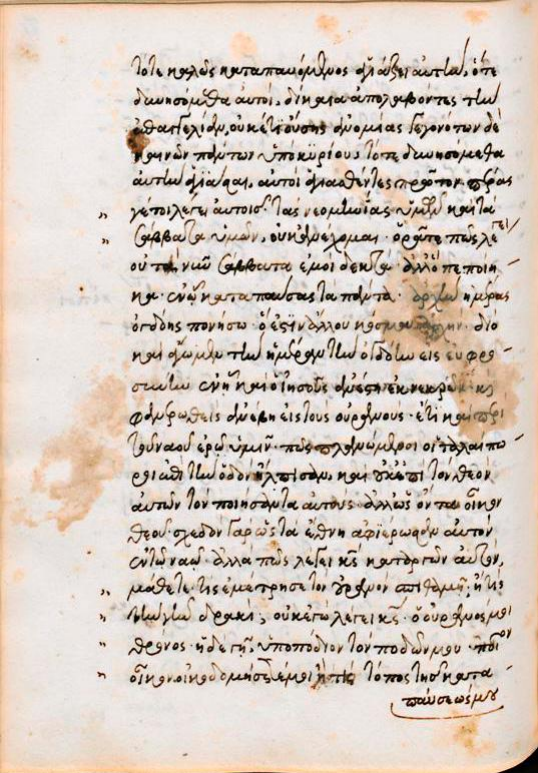 τότε καλῶς καταπαυόμενος ἁγιάζει αὐτὴν, ὅτε
δυνησόμεθα αὐτοὶ, δίκαια ἀπολαβόντες τὴν
ἐπαγγελίαν, οὐκέτι οὔσης ἀνομίας γεγονότων δὲ
καινῶν πάντων ὑπὸ κυρίου, τότε δυνησόμεθα
αὐτὴν ἁγιάσαι, αὐτοὶ ἁγιασθέντες πρῶτον. πέρας
γέ τοι λέγει αὐτοῖς· τὰς νεομηνίας ὑμῶν καὶ τὰ
σάββατα ὑμῶν, οὐκ ἀνέχομαι· ὁρᾶτε πῶς λέγει
οὐ τὰ νῦν σάββατα ἐμοὶ δεκτὰ ἀλλ' ὃ πεποίη
κα· ἐν ᾧ καταπαύσας τὰ πάντα· ἀρχὴν ἡμέρας
ὀγδόης ποιήσω· ὅ ἐστιν ἄλλου κόσμου ἀρχήν· διὸ
καὶ ἄγωμεν τὴν ἡμέραν τὴν ὀγδόην εἰς εὐφρο
σύνην ἐν ᾗ καὶ ὁ ἰησοῦς ἀνέστη ἐκ νεκρῶν κὶ
φανερωθεὶς ἀνέβη εἰς τοὺς οὐρανούς· ἔτι καὶ περὶ
τοῦ ναοῦ ἐρῶ ὑμῖν· πῶς πλανώμενοι οἱ ταλαίπω
ροι ἐπὶ τὴν ὁδὸν ἤλπισαν, καὶ οὐκ ἐπὶ τὸν θεὸν
αὐτῶν τὸν ποιήσαντα αὐτοὺς ἀλλ' ὡς ὄντα οἶκον
θεοῦ· σχεδὸν γὰρ ὡς τὰ ἔθνη ἀφιέρωσαν αὐτὸν
ἐν τῷ ναῷ· ἀλλὰ πῶς λέγει κς καταργῶν αὐτόν,
μάθετε· τίς ἐμέτρησε τὸν οὐρανὸν σπιθαμῇ, ἢ τίς
τὴν γῆν δρακί; οὐκ ἐγὼ λέγει κς· ὁ οὐρανός μοι
θρόνος· ἡ δὲ γῆ, ὑποπόδιον τῶν ποδῶν μου· ποῖον
οἶκον οἰκοδομήσετέ μοι ἢ τίς τόπος τῆς κατα
παύσεώς μου